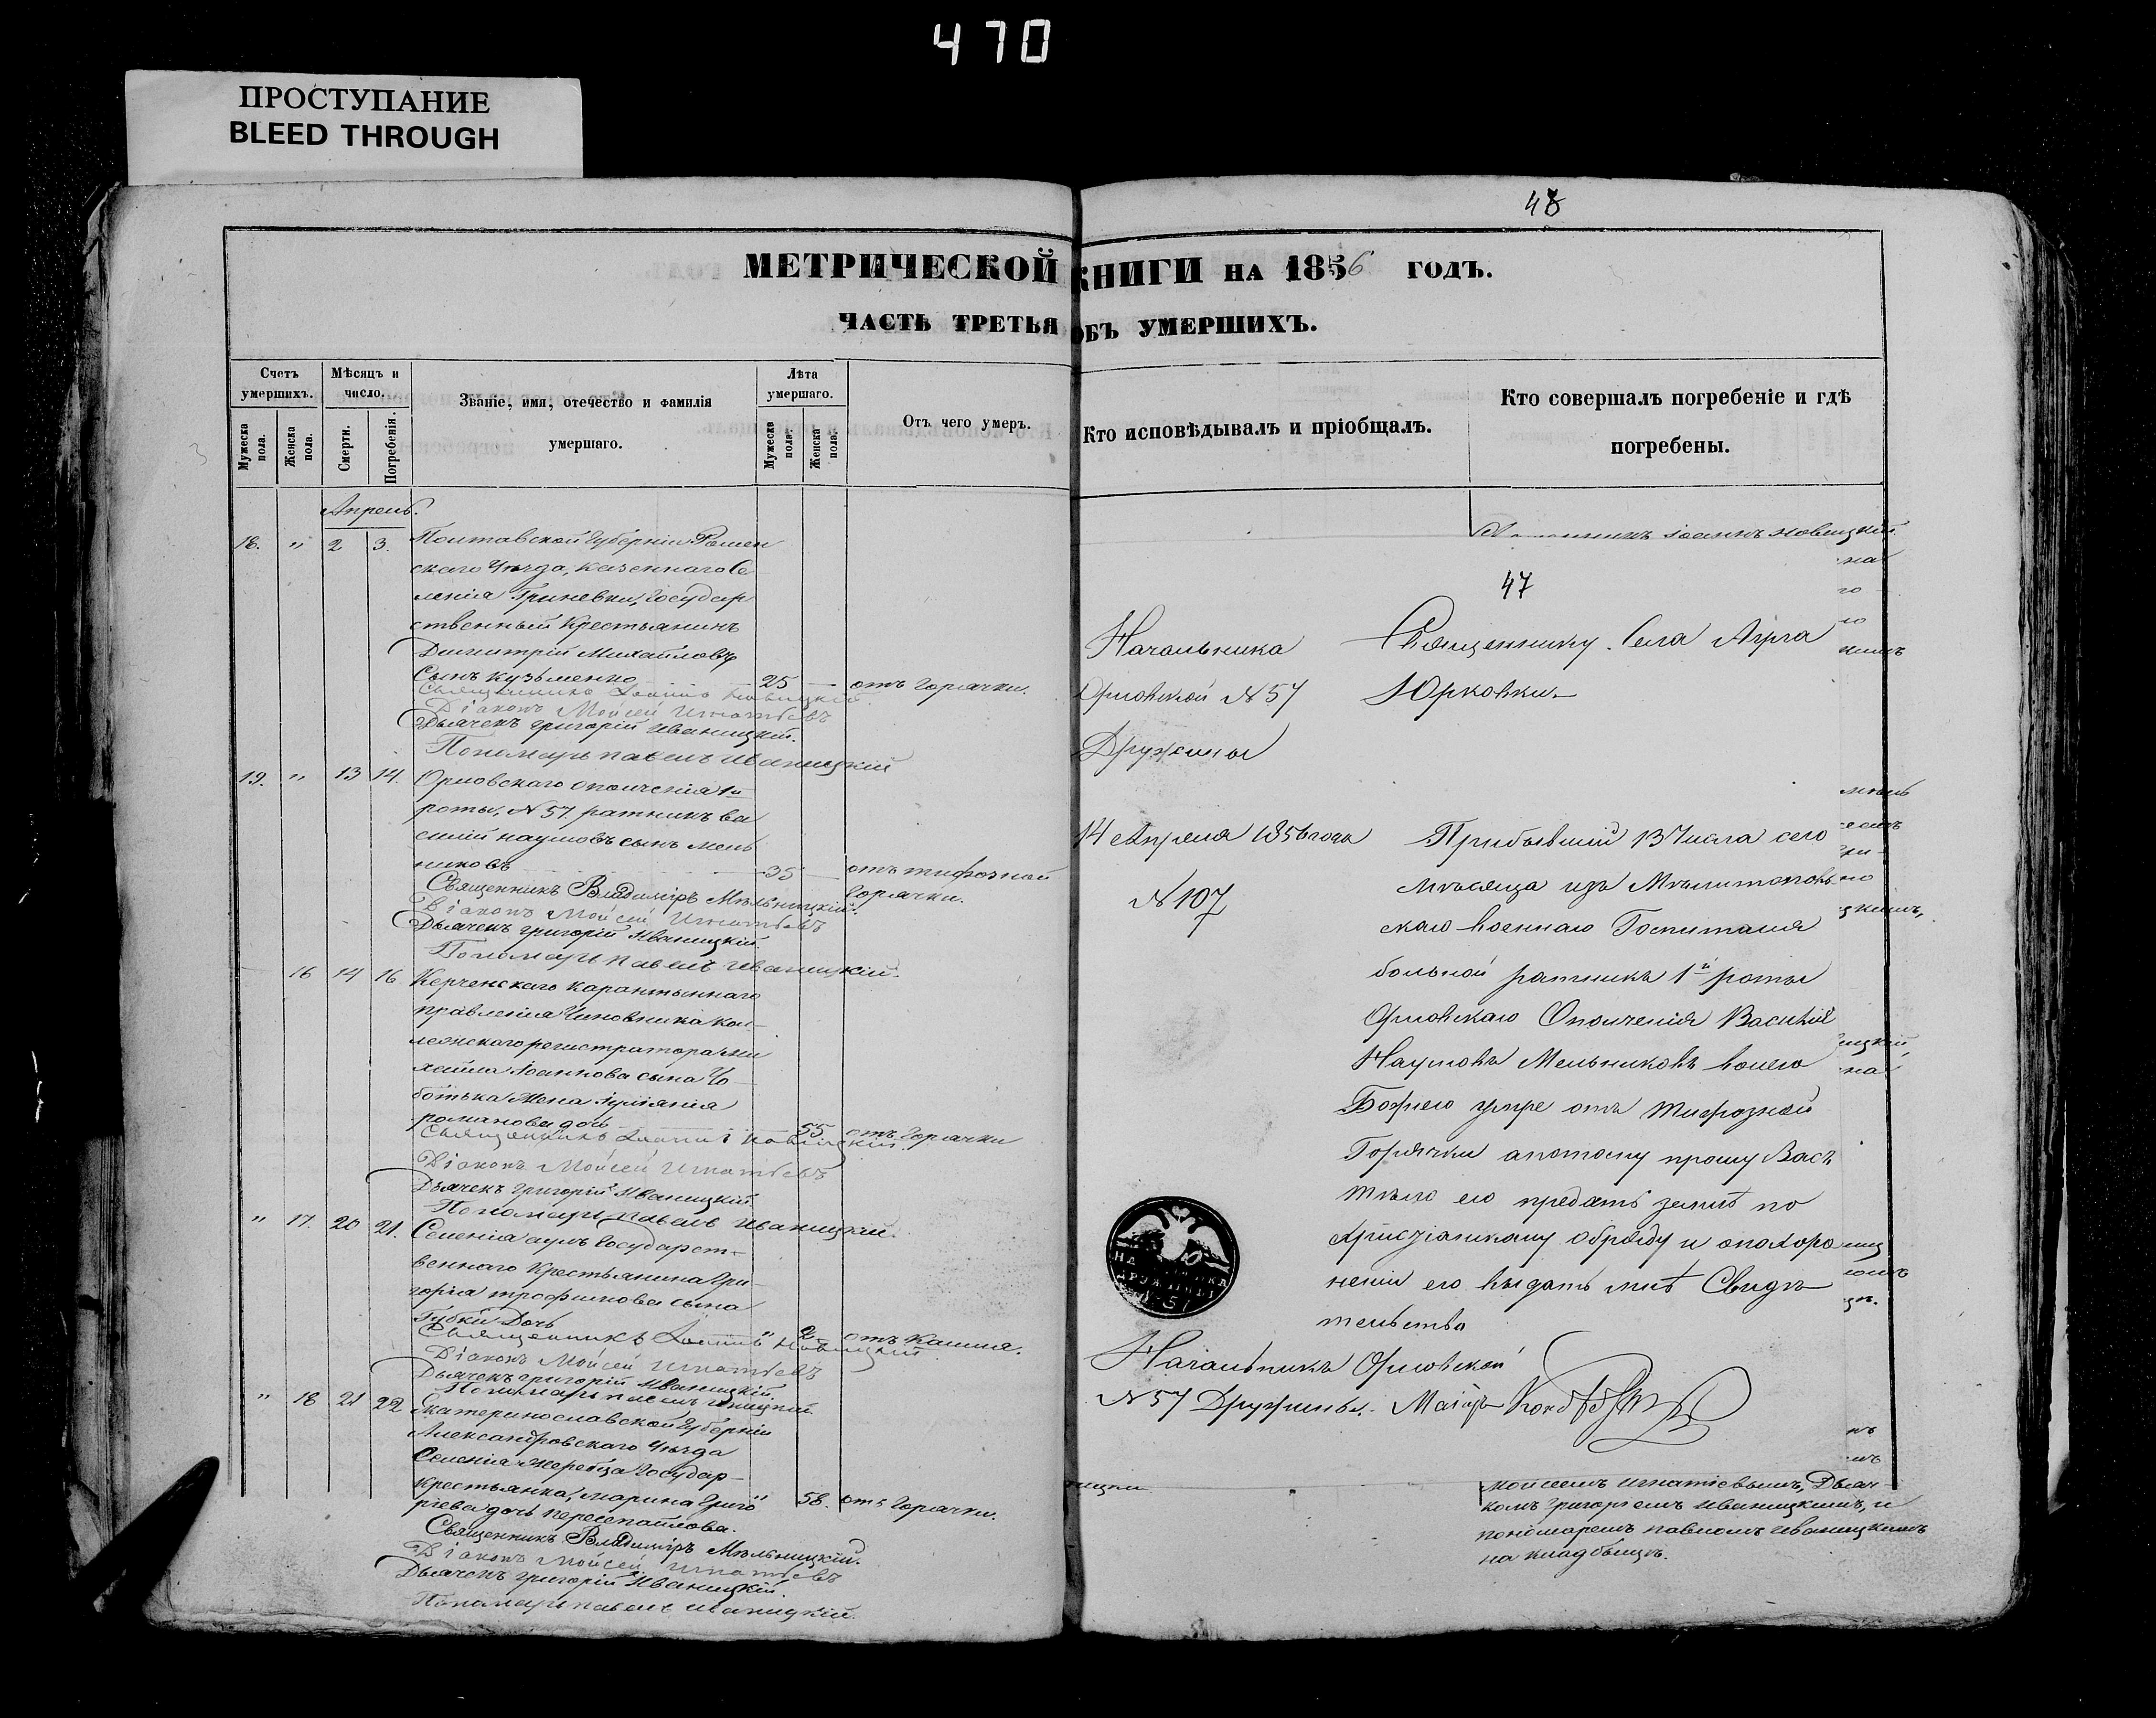 470
ПРОСТУПАНИЕ
BLEED THROUGH
48
МЕТРИЧЕСКОЙ КНИГИ НА 1856 ГОДЪ.
ЧАСТЬ ТРЕТЬЯ ОБЪ УМЕРШИХЪ.
Счетъ умершихъ.
Мужеска пола.
Женска пола.
Мѣсяцъ и число.
Смерти.
Погребенія.
Званіе, имя, отечество и фамилія умершаго.
Лѣта умершаго.
Мужеска пола.
Женска пола.
Отъ чего умеръ.
Кто исповѣдывалъ и пріобщалъ.
Кто совершалъ погребеніе и гдѣ погребены.
Апрель.
18. " 2 3. Полтавской Губерніи Ромен
скаго Уѣзда, казеннаго Се
ленія Гриневки, Государ
ственный Крестьянинъ
Димитрій Михайловъ
Сынъ Кузьменко 25 отъ горячки.
Священникъ Іоаннъ Новицкій
Діаконъ Мойсей Игнатьевъ
Дьячекъ Григорій Иваницкій.
Пономарь Павелъ Иваницкій
19. " 13 14. Орловскаго ополченія 1й
роты, N 57. ратникъ Ва
силій Наумовъ сынъ Мель
никовъ 35 отъ тифозной
горячки.
Священникъ Владиміръ Мѣльницкій.
Діаконъ Мойсей Игнатьевъ
Дьячекъ Григорій Иваницкій.
Пономарь Павелъ Иваницкій.
16 14 16 Керченскаго Карантиннаго
правленія Чиновника кол-
лежскаго регистратора Ми
хаила Іоаннова сына Чо-
ботька Жена
романова дочь 55 отъ Горячки
Священникъ Іоаннъ Новицкій.
Діаконъ Мойсей Игнатьевъ
Дьячекъ Григорій Иваницкій.
Пономарь Павелъ Иваницкій.
" 17. 20 21. Селенія Государст-
веннаго Крестьянина Гри-
горія Трофимова сына
Губкіи Дочь 2 отъ Кашля.
Священникъ Іоаннъ Новицкій
Діаконъ Мойсей Игнатьевъ
Дьячекъ Григорій Иваницкій.
Пономарь Павелъ Иваницкій
" 18 21 22 Екатеринославской Губерніи
Александровскаго Уѣзда
Селенія Жеребца Государ-
крестьянка, Марина Григо
ріева дочь 58. отъ Горячки.
Священникъ Владиміръ Мѣльницкій.
Діаконъ Мойсей Игнатьевъ
Дьячекъ Григорій Иваницкій.
Пономарь Павелъ Иваницкій.
Іоаннъ Новицкій
47
Начальника
Орловской N 57
Дружины
14 Апреля 1856 года
N 107
Священнику Села
Юрковки
Прибывшій 13 Числа сего
мѣсяца изъ Мѣлитополь
скаго военнаго Госпиталя
больной ратникъ 1й роты
Орловскаго Ополченія Василій
Наумовъ Мельниковъ волею
Божіею умре отъ тифозной
Горячки апотому прошу Васъ
тѣло его предать землѣ по
христіанскому обряду и опохоро
неніи его выдать мнѣ Свидѣ
тельство
НАЧАЛЬНИКА ДРУЖИНЫ N 57
Начальникъ Орловской
N 57 Дружины. Маіоръ
Мойсеемъ Игнатіевымъ, Дьяч-
комъ Григоріемъ Иваницкимъ, и
пономаремъ Павломъ Иваницкимъ
на кладбищѣ.